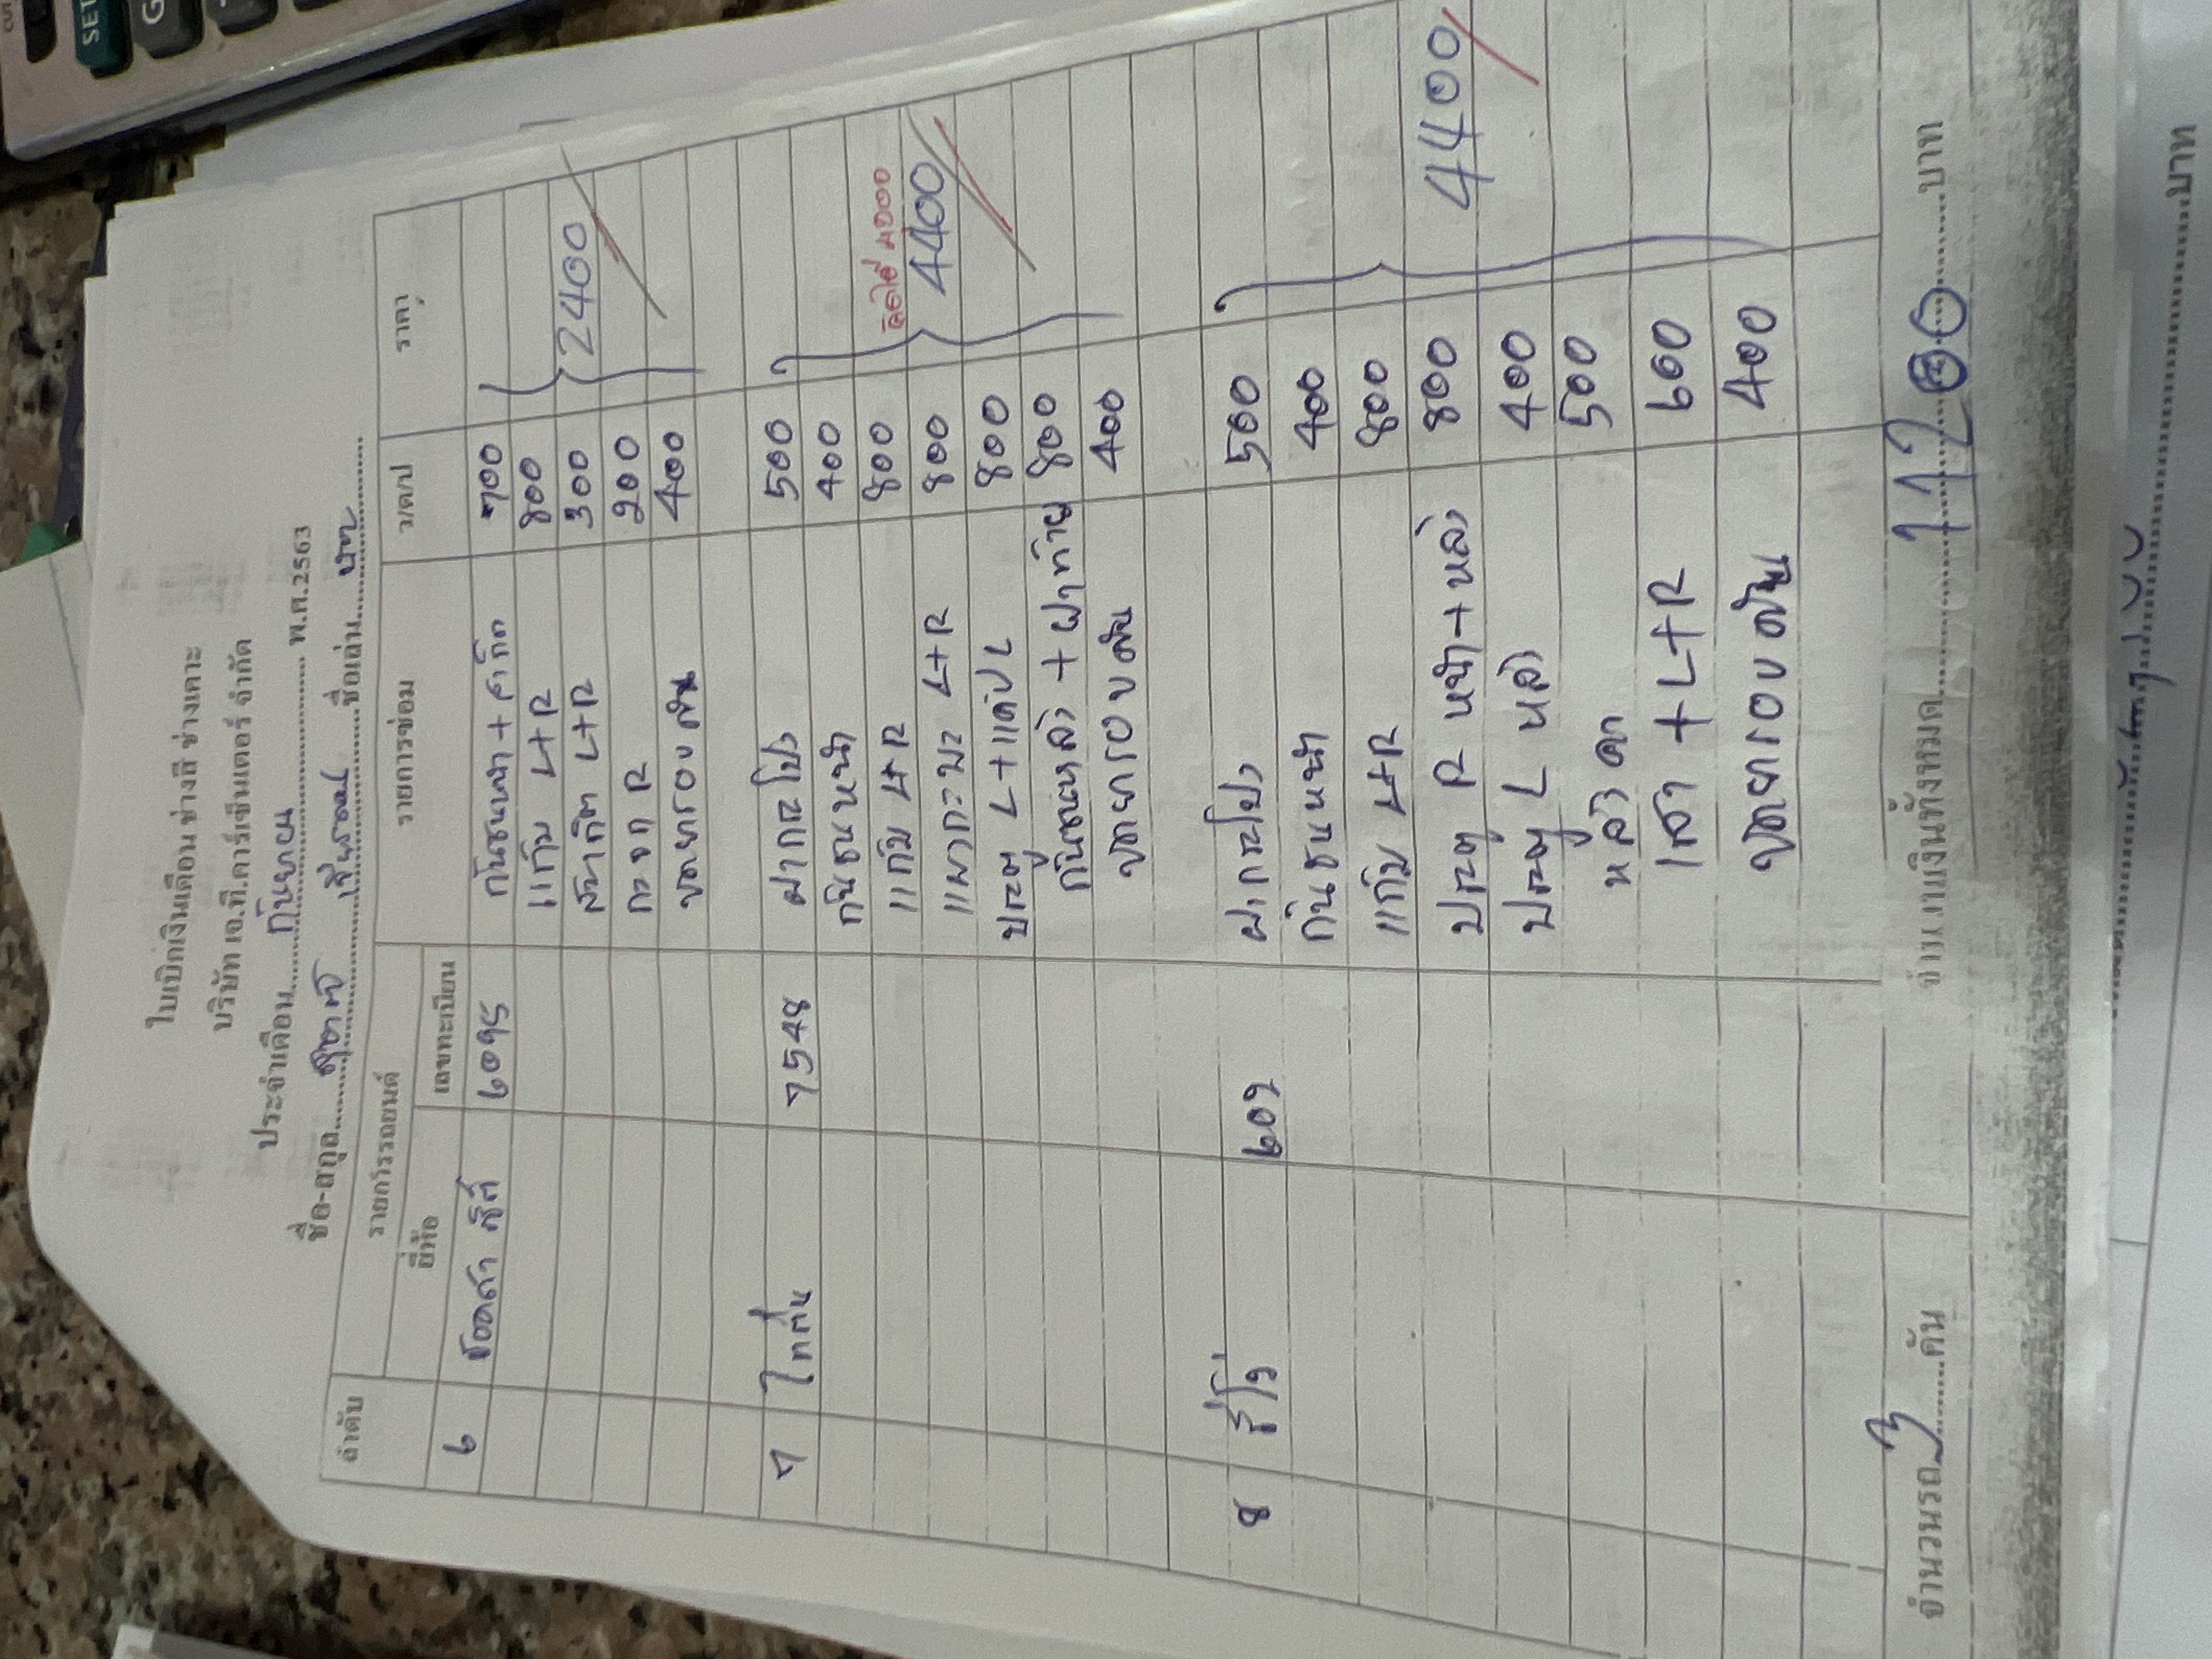 ใบเบิกเงินเดือน ช่างสี ช่างเคาะ
บริษัท เจ.ที.คาร์เซ็นเตอร์ จำกัด
ประจำเดือน....กันยายน.... พ.ศ.2563
ชื่อ-สกุล.... ....ชื่อเล่น....
ลำดับ รายการรถยนต์ รายการซ่อม ว/ด/ป ราคา
ยี่ห้อ เลขทะเบียน
6 ซิตี้ 6095 กันชนหน้า + 700
แก้ม L+R 800
L+R 300 2400
R 200
ขัดยารอบคัน 400
7 ไททั่น 7548 ฝากระโปรง 500
กันชนหน้า 400
แก้ม L+R 800 4000
L+R 800 4400
ประตู L + แค๊ป L 800
กันชนหลัง + ฝาท้าย 800
ขัดยารอบคัน 400
8 รีโว่ 609 ฝากระโปรง 500
กันชนหน้า 400
แก้ม L+R 800
ประตู R หน้า+หลัง 800 4400
ประตู L หลัง 400
หลังคา 500
เสา + L+R 600
ขัดยารอบคัน 400
จำนวนรถ 3 คัน จำนวนเงินทั้งหมด 11200 บาท
บาท
SET